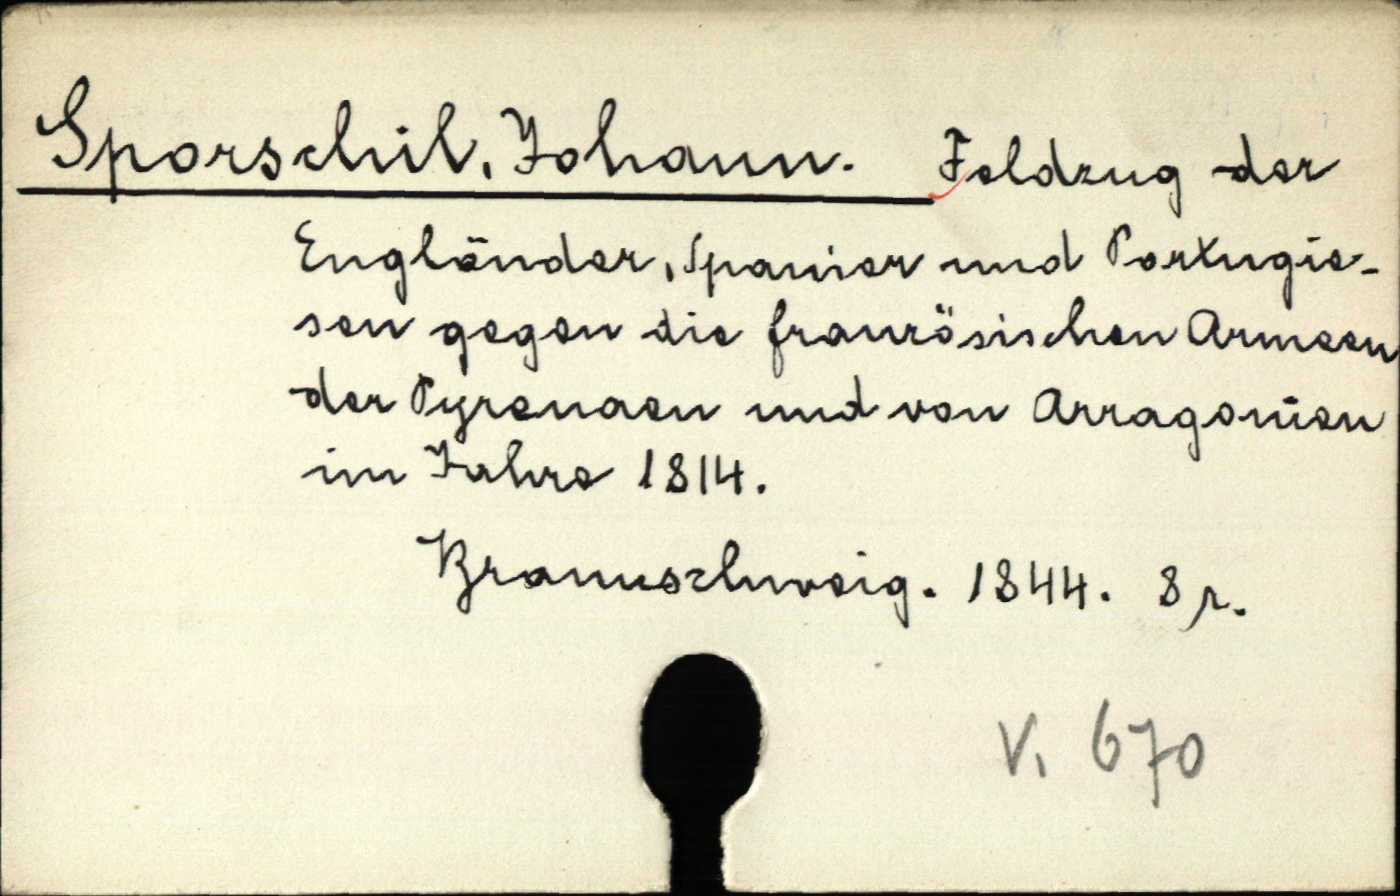 Sporschil, Johann. Feldzug der
Engländer, Spanier und Portugie-
sen gegen die französischen Armeen
der Pyrenaen und von Arragonien
im Jahre 1814.
Braunschweig. 1844. 8 r.
V. 670